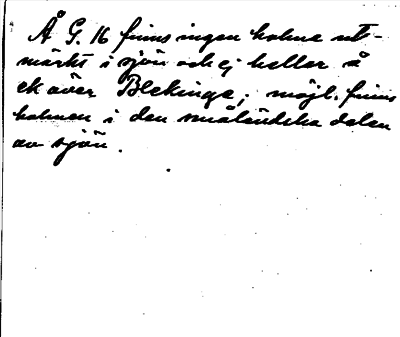 Å G. 16 finns ingen holme ut-
märkt i sjön och ej heller å
ek över Blekinge; möjl. finns
holmen i den småländska delen
av sjön.